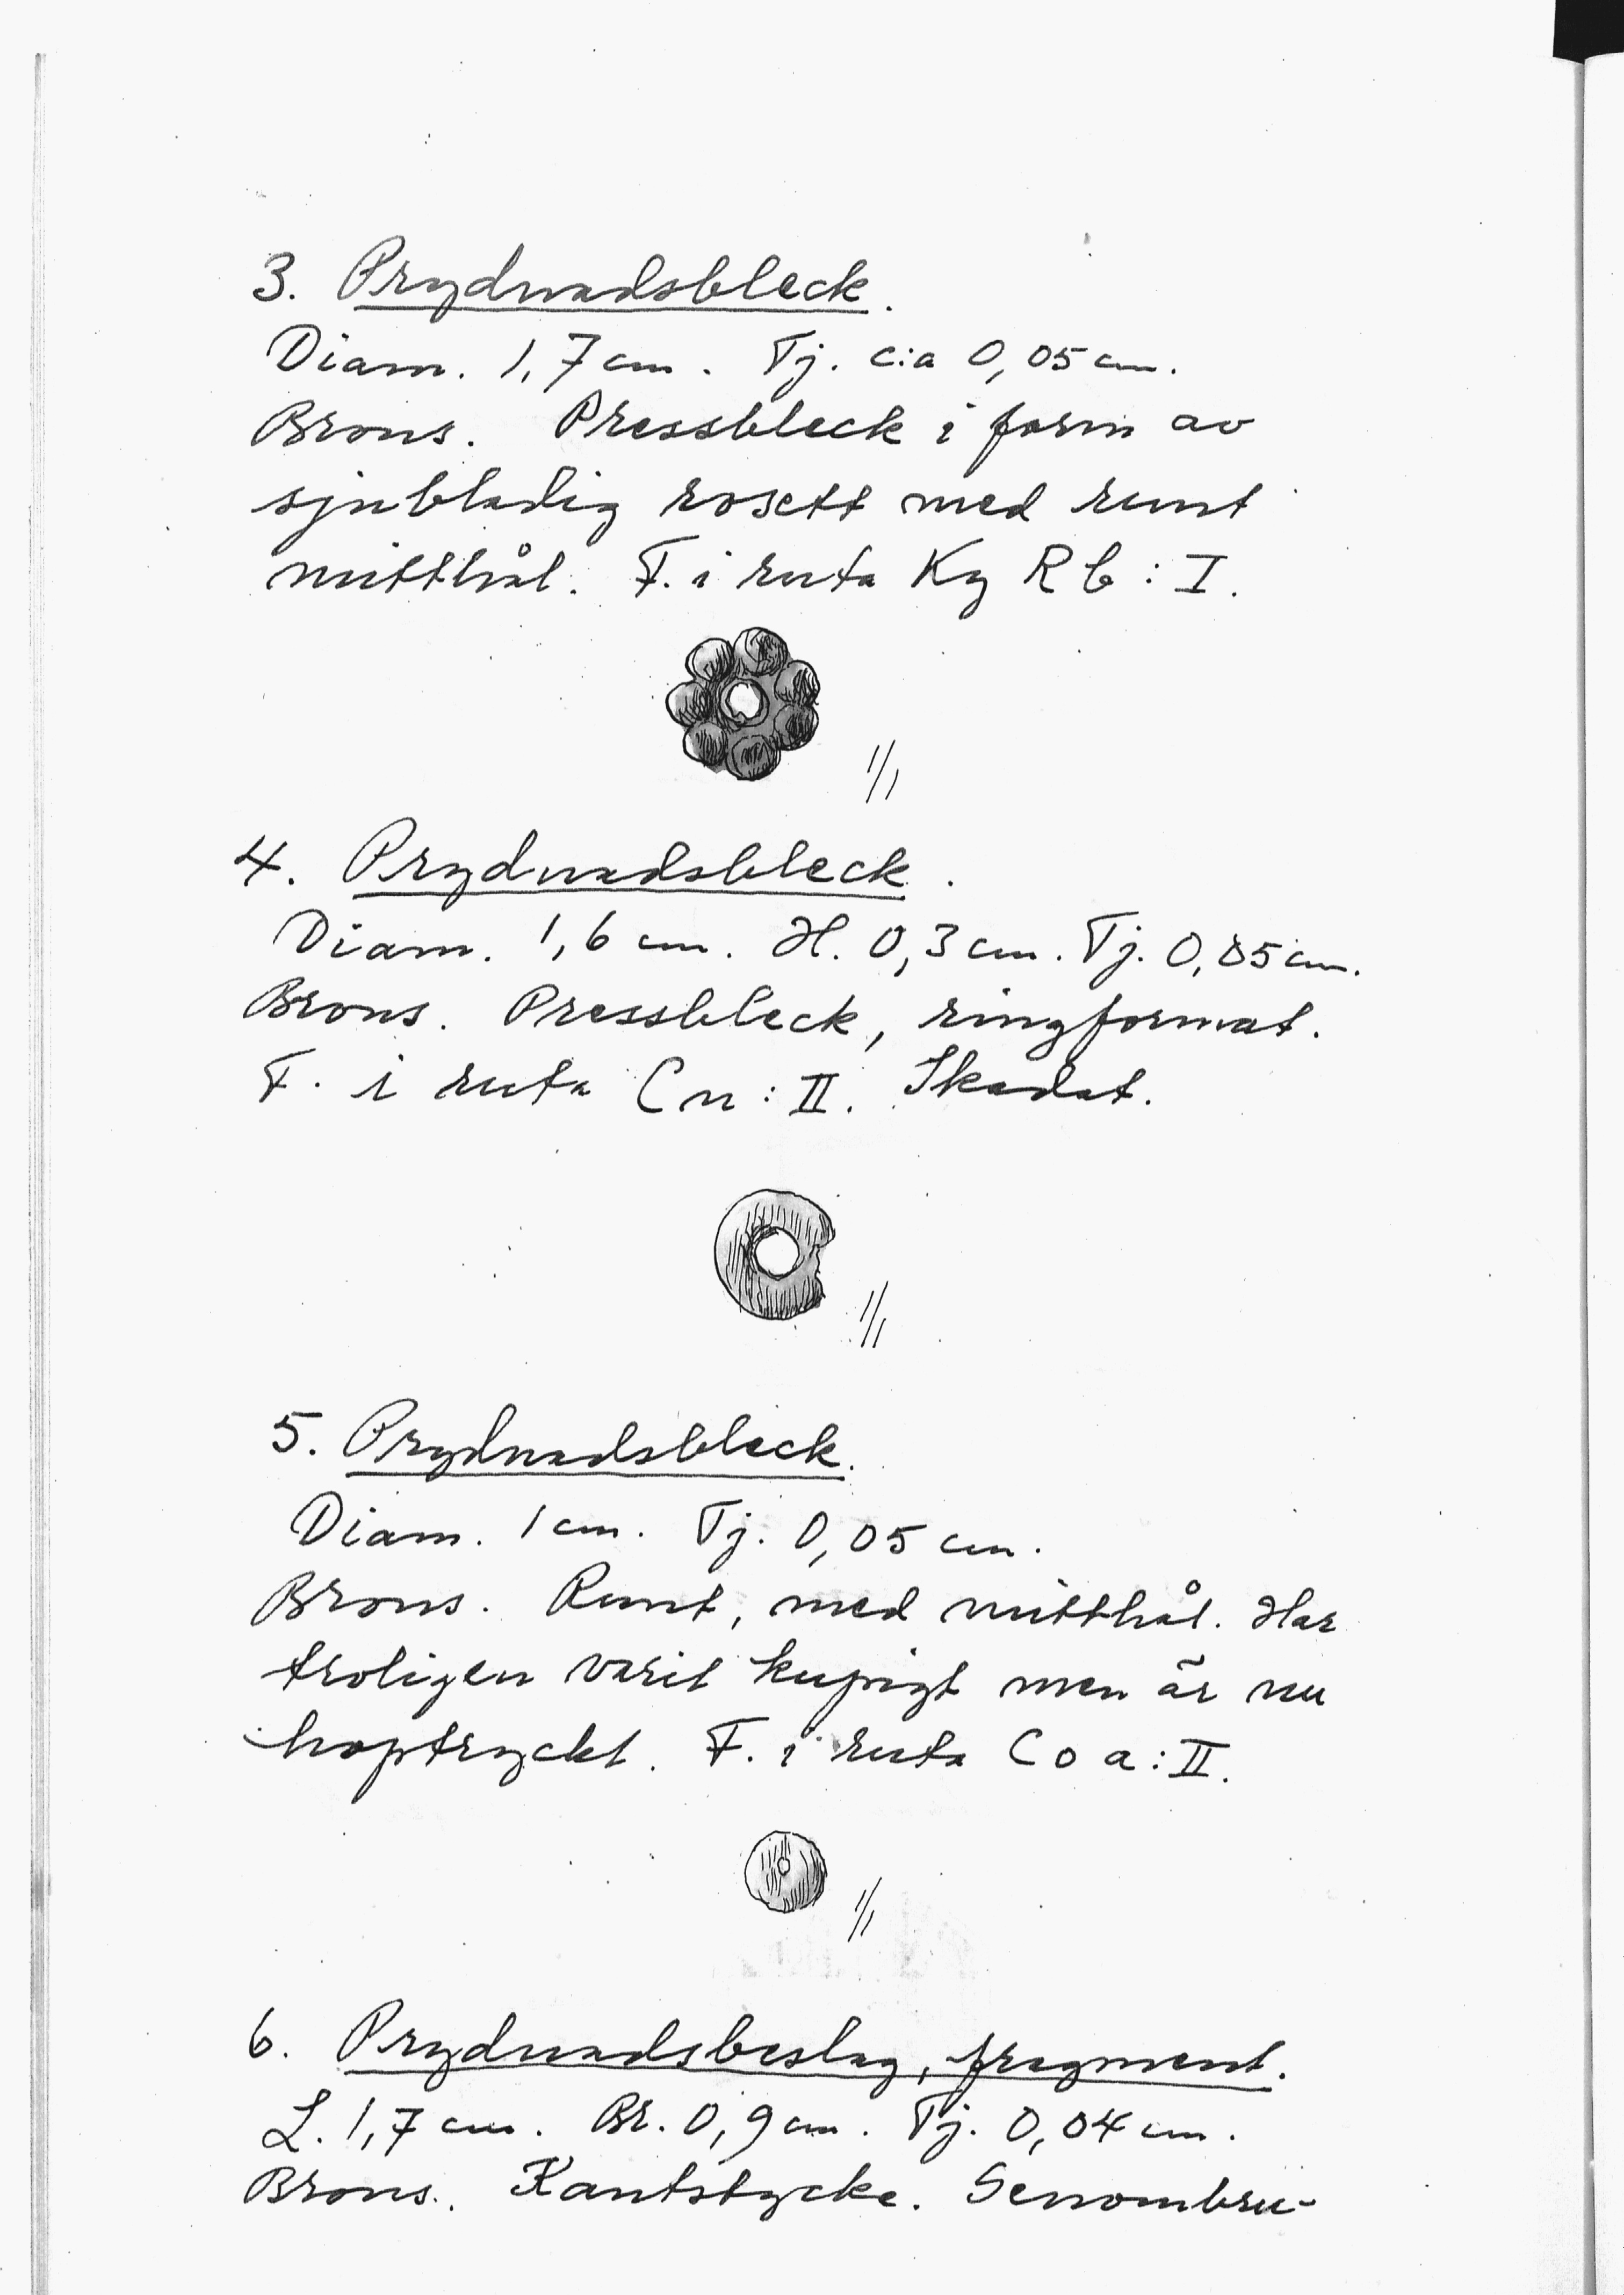 3. Prydnadsbleck.
Diam. 1,7 cm. Tj. c:a 0,05 cm.
Brons. Pressbleck i form av
sjubladig rosett med runt
mitthål. F. i ruta Kg R b : I.
1/1
4. Prydnadsbleck.
Diam. 1,6 cm. H. 0,3 cm. Tj. 0,05 cm.
Brons. Pressbleck, ringformat.
F. i ruta C n : II. Skadat.
1/1
5. Prydnadsbleck.
Diam. 1 cm. Tj. 0,05 cm.
Brons. Runt, med mitthål. Har
troligen varit kupigt men är nu
hoptryckt. F. i ruta C o a : II.
1/1
6. Prydnadsbeslag, fragment.
L. 1,7 cm. Br. 0,9 cm. Tj. 0,04 cm.
Brons. Kantstycke. Genombru-